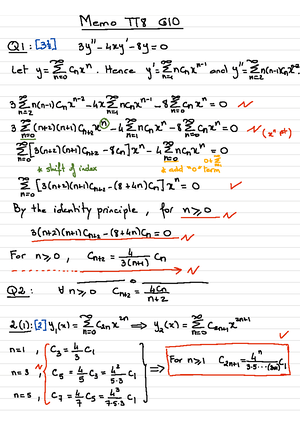 Memo TT8 G10
Q1: [38] 3y'' - 4xy' - 8y = 0
Let y = ∞Σn=0 cₙxⁿ. Hence y' = ∞Σn=1 ncₙxⁿ⁻¹ and y'' = ∞Σn=2 n(n-1)cₙxⁿ⁻²
3 ∞Σn=2 n(n-1)cₙxⁿ⁻² - 4x ∞Σn=1 ncₙxⁿ⁻¹ - 8 ∞Σn=0 cₙxⁿ = 0
3 ∞Σn=0 (n+2)(n+1)cₙ₊₂xⁿ - 4 ∞Σn=1 ncₙxⁿ - 8 ∞Σn=0 cₙxⁿ = 0
∞Σn=0 [3(n+2)(n+1)cₙ₊₂ - 8cₙ]xⁿ - 4 ∞Σn=0 ncₙxⁿ = 0
* shift of index * add "=0" term
∞Σn=0 [3(n+2)(n+1)cₙ₊₂ - (8+4n)cₙ]xⁿ = 0
By the identity principle, for n ≥ 0
3(n+2)(n+1)cₙ₊₂ - (8+4n)cₙ = 0
For n ≥ 0, cₙ₊₂ = 4/3(n+1) cₙ
Q2: ∀ n ≥ 0 cₙ₊₂ = 4cₙ/n+2
2(1): [3] y₁(x) = ∞Σn=0 c₂ₙx²ⁿ ⟹ y₂(x) = ∞Σn=0 c₂ₙ₊₁x²ⁿ⁺¹
n=1, c₃ = 4/3 c₁
n=3, c₅ = 4/5 c₃ = 4²/5·3 c₁
n=5, c₇ = 4/7 c₅ = 4³/7·5·3 c₁
⟹ For n ≥ 1 c₂ₙ₊₁ = 4ⁿ/3·5···(2n+1) c₁